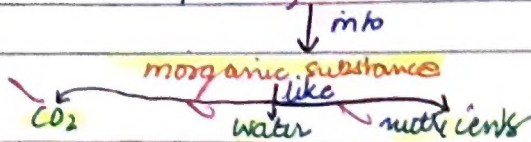 into
inorganic substance
like
CO2 water nutrients